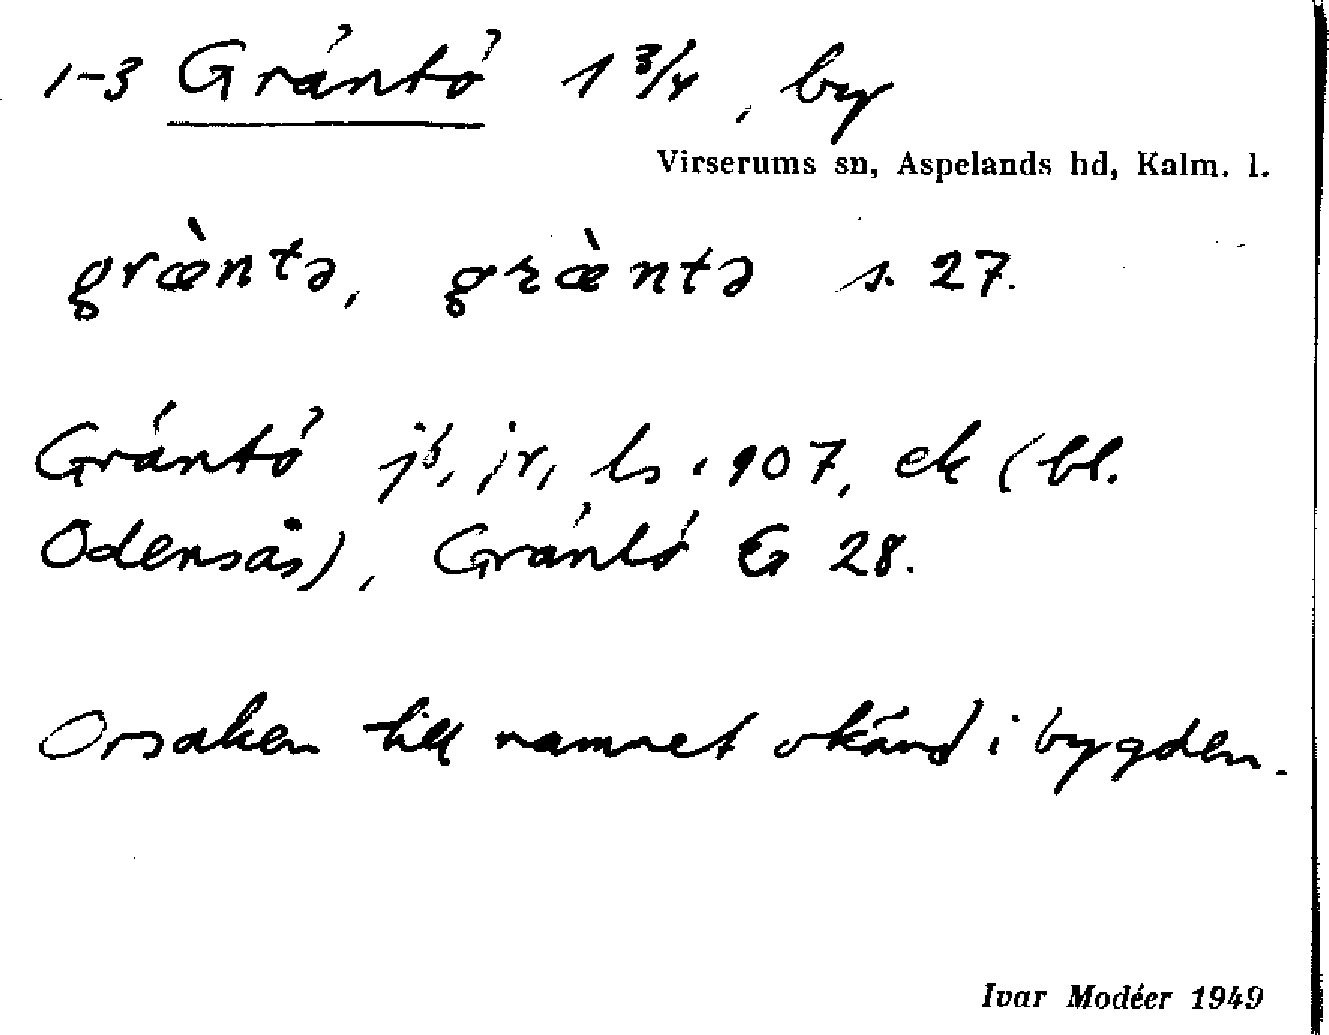 1-3 Gräntö 1 3/4, by
Virserums sn, Aspelands hd, Kalm. l.
græ̀ntə, græ̀ntə s. 27.
Gräntö jb, jr, ls 1907, ek (bl.
Odensås), Gräntö G 28.
Orsaken till namnet okänd i bygden.
Ivar Modéer 1949